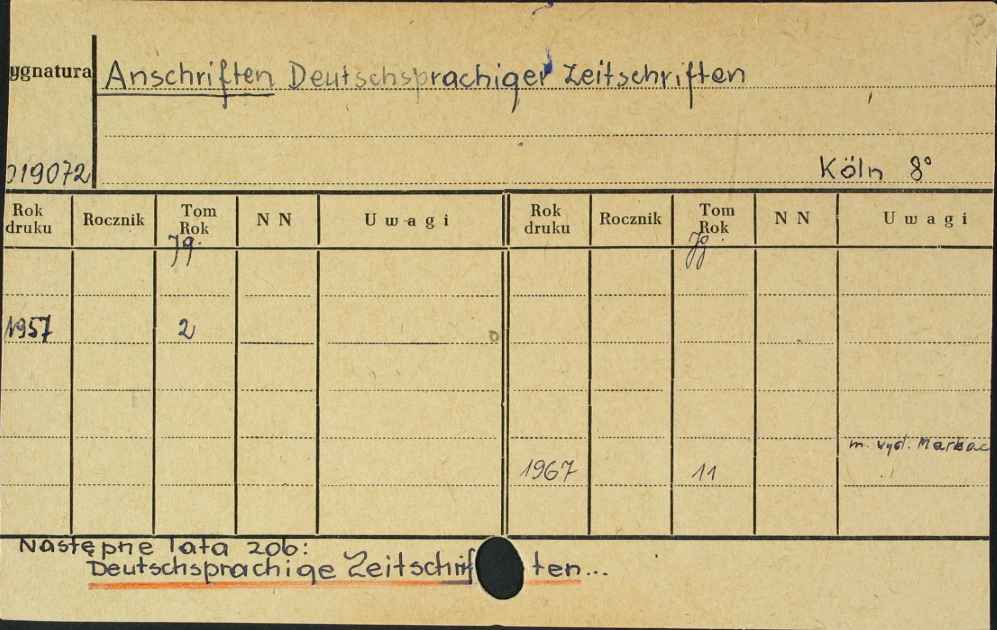 ygnatura Anschriften Deutschsprachiger Zeitschriften
019072 Köln 8°
Rok druku Rocznik Tom Rok N N Uwagi Rok druku Rocznik Tom Rok N N Uwagi
Jg. Jg.
1957 2
m. wyd. Marbac
1967 11
Następne lata zob:
Deutschsprachige Zeitschrif ten...